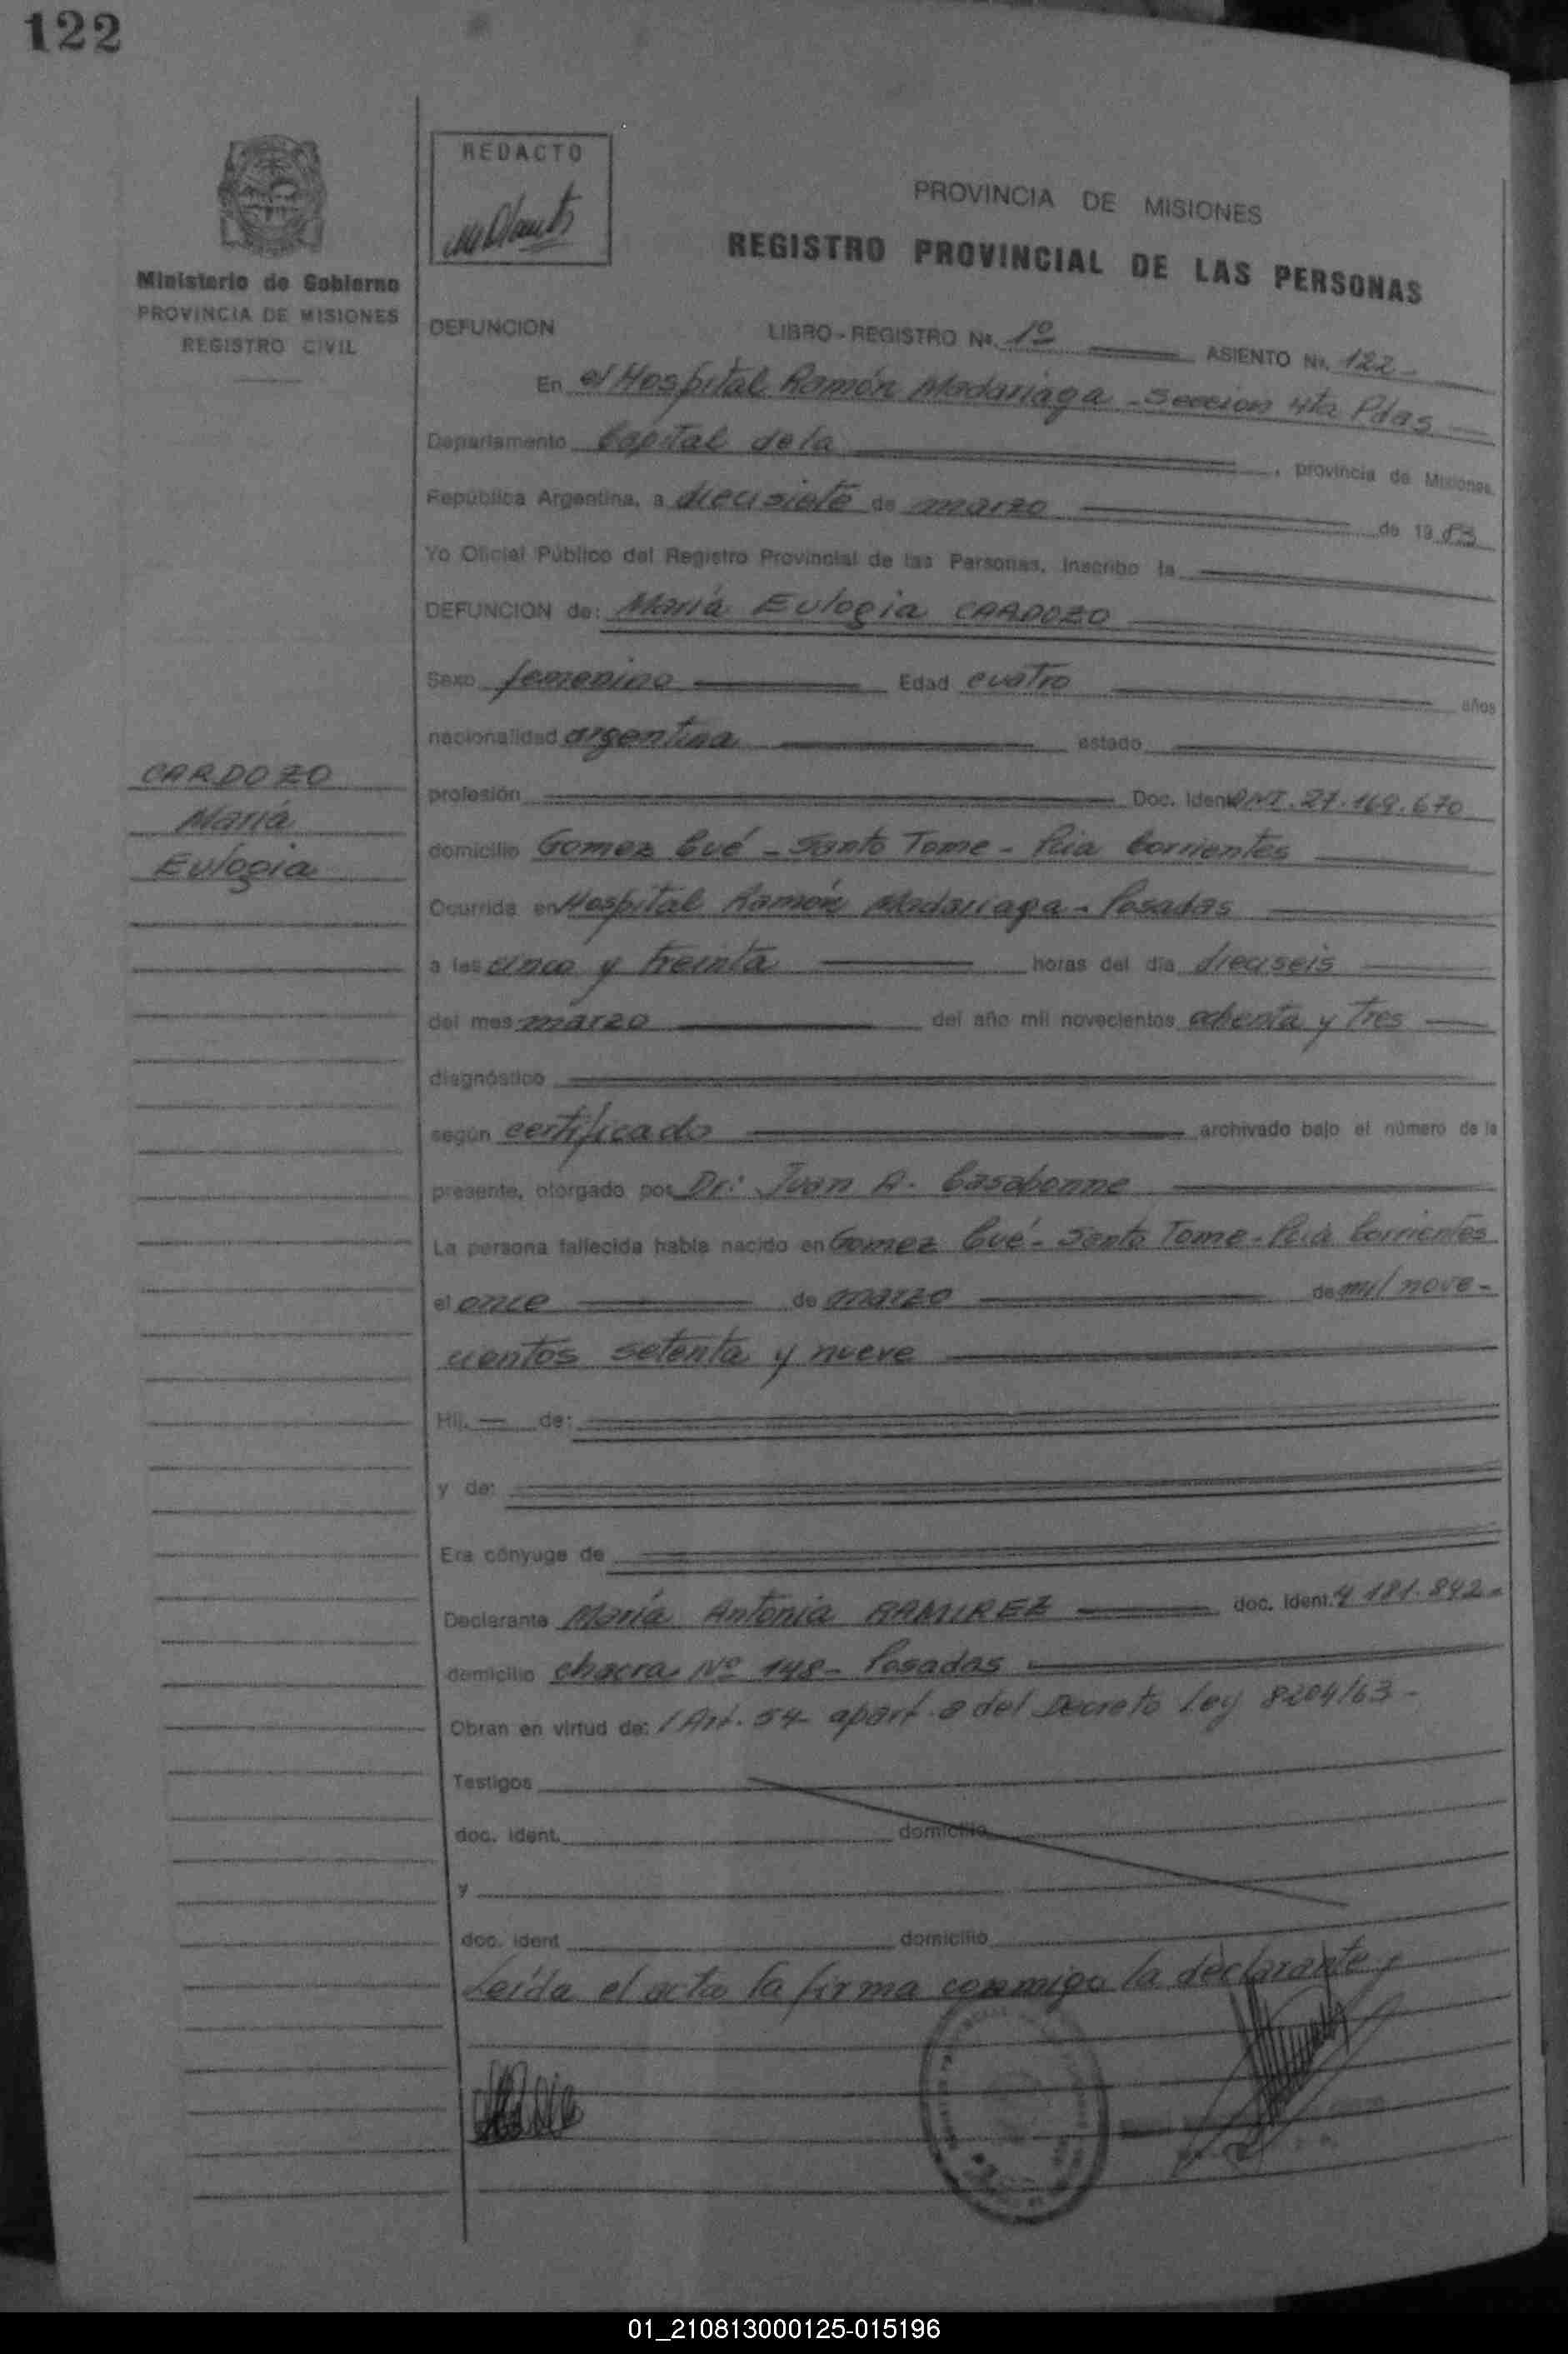 122
REDACTO
PROVINCIA DE MISIONES
REGISTRO PROVINCIAL DE LAS PERSONAS
Ministerio de Gobierno
PROVINCIA DE MISIONES
REGISTRO CIVIL
DEFUNCION LIBRO-REGISTRO Nº. 1º ASIENTO Nº. 122-
En el Hospital Ramón Madariaga - Seccion 4ta Pdas
Departamento Capital de la , provincia de Misiones,
República Argentina, a diecisiete de marzo de 1983
Yo Oficial Público del Registro Provincial de las Personas, inscribo la
DEFUNCION de: María Eulogia CARDOZO
Sexo femenino Edad cuatro años
nacionalidad argentina estado
CARDOZO
María
Eulogia
profesión Doc. Ident. DNI. 27.169.670
domicilio Gomez Cué - Santo Tome - Pcia Corrientes
Ocurrida en Hospital Ramón Madariaga - Posadas
a las cinco y treinta horas del día dieciseis
del mes marzo del año mil novecientos ochenta y tres
diagnóstico
según certificado archivado bajo el número de la
presente, otorgado por Dr: Juan A. Casabonne
La persona fallecida había nacido en Gomez Cué - Santo Tome - Pcia Corrientes
el once de marzo de mil nove-
cientos setenta y nueve
Hij. de:
y de:
Era cónyuge de
Declarante María Antonia RAMIREZ doc. ident. 4 181.842-
domicilio chacra Nº 148- Posadas
Obran en virtud de: /Art. 54- apart. a del Decreto Ley 8204/63-
Testigos
doc. ident. domicilio
y
doc. ident domicilio
Leída el acta la firma conmigo la declarante,
01_210813000125-015196